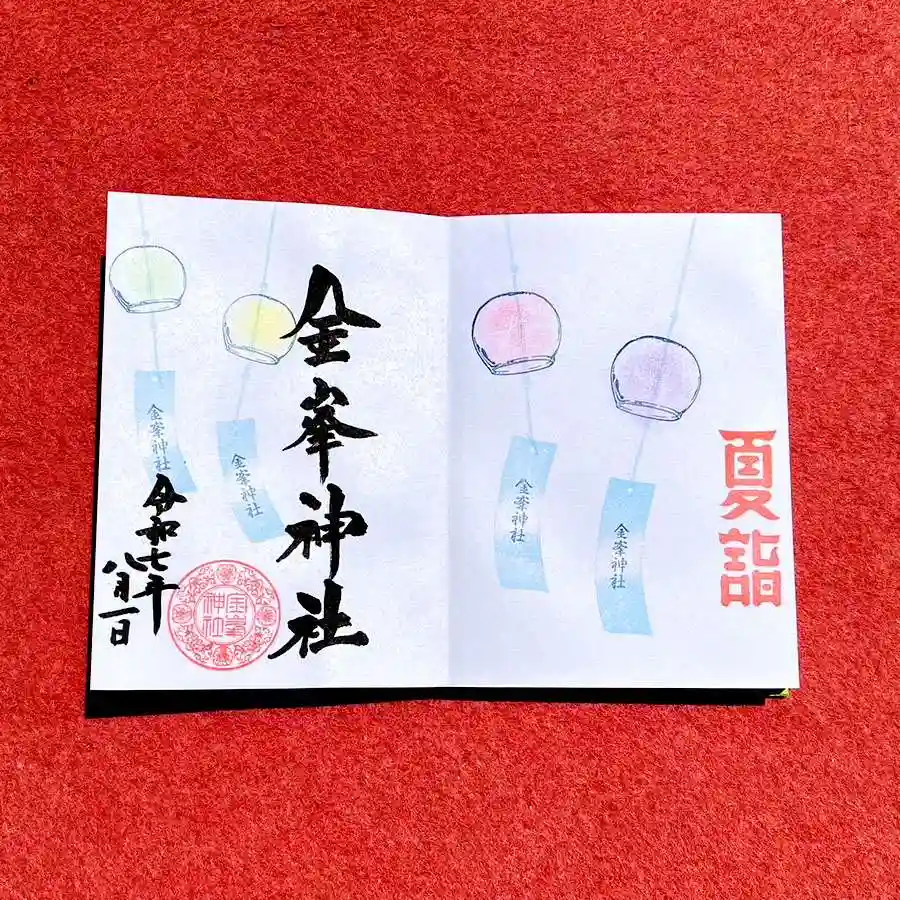 夏詣
金峯神社
金峯神社
金峯神社
金峯神社
金峯神社
金峯神社
令和七年
八月一日